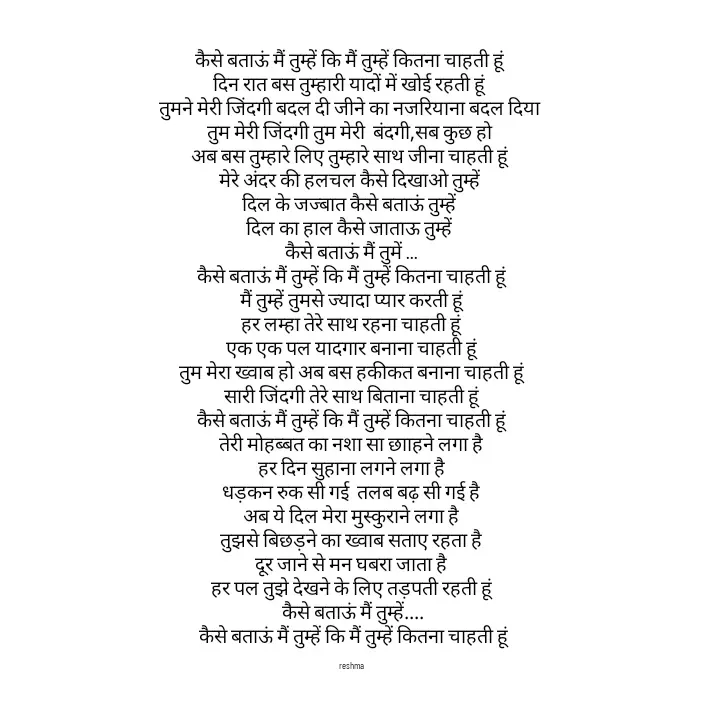 कैसे बताऊं मैं तुम्हें कि मैं तुम्हें कितना चाहती हूं
दिन रात बस तुम्हारी यादों में खोई रहती हूं
तुमने मेरी जिंदगी बदल दी जीने का नजरियाना बदल दिया
तुम मेरी जिंदगी तुम मेरी बंदगी,सब कुछ हो
अब बस तुम्हारे लिए तुम्हारे साथ जीना चाहती हूं
मेरे अंदर की हलचल कैसे दिखाओ तुम्हें
दिल के जज्बात कैसे बताऊं तुम्हें
दिल का हाल कैसे जाताऊ तुम्हें
कैसे बताऊं मैं तुमें ...
कैसे बताऊं मैं तुम्हें कि मैं तुम्हें कितना चाहती हूं
मैं तुम्हें तुमसे ज्यादा प्यार करती हूं
हर लम्हा तेरे साथ रहना चाहती हूं
एक एक पल यादगार बनाना चाहती हूं
तुम मेरा ख्वाब हो अब बस हकीकत बनाना चाहती हूं
सारी जिंदगी तेरे साथ बिताना चाहती हूं
कैसे बताऊं मैं तुम्हें कि मैं तुम्हें कितना चाहती हूं
तेरी मोहब्बत का नशा सा छााहने लगा है
हर दिन सुहाना लगने लगा है
धड़कन रुक सी गई तलब बढ़ सी गई है
अब ये दिल मेरा मुस्कुराने लगा है
तुझसे बिछड़ने का ख्वाब सताए रहता है
दूर जाने से मन घबरा जाता है
हर पल तुझे देखने के लिए तड़पती रहती हूं
कैसे बताऊं मैं तुम्हें....
कैसे बताऊं मैं तुम्हें कि मैं तुम्हें कितना चाहती हूं
reshma